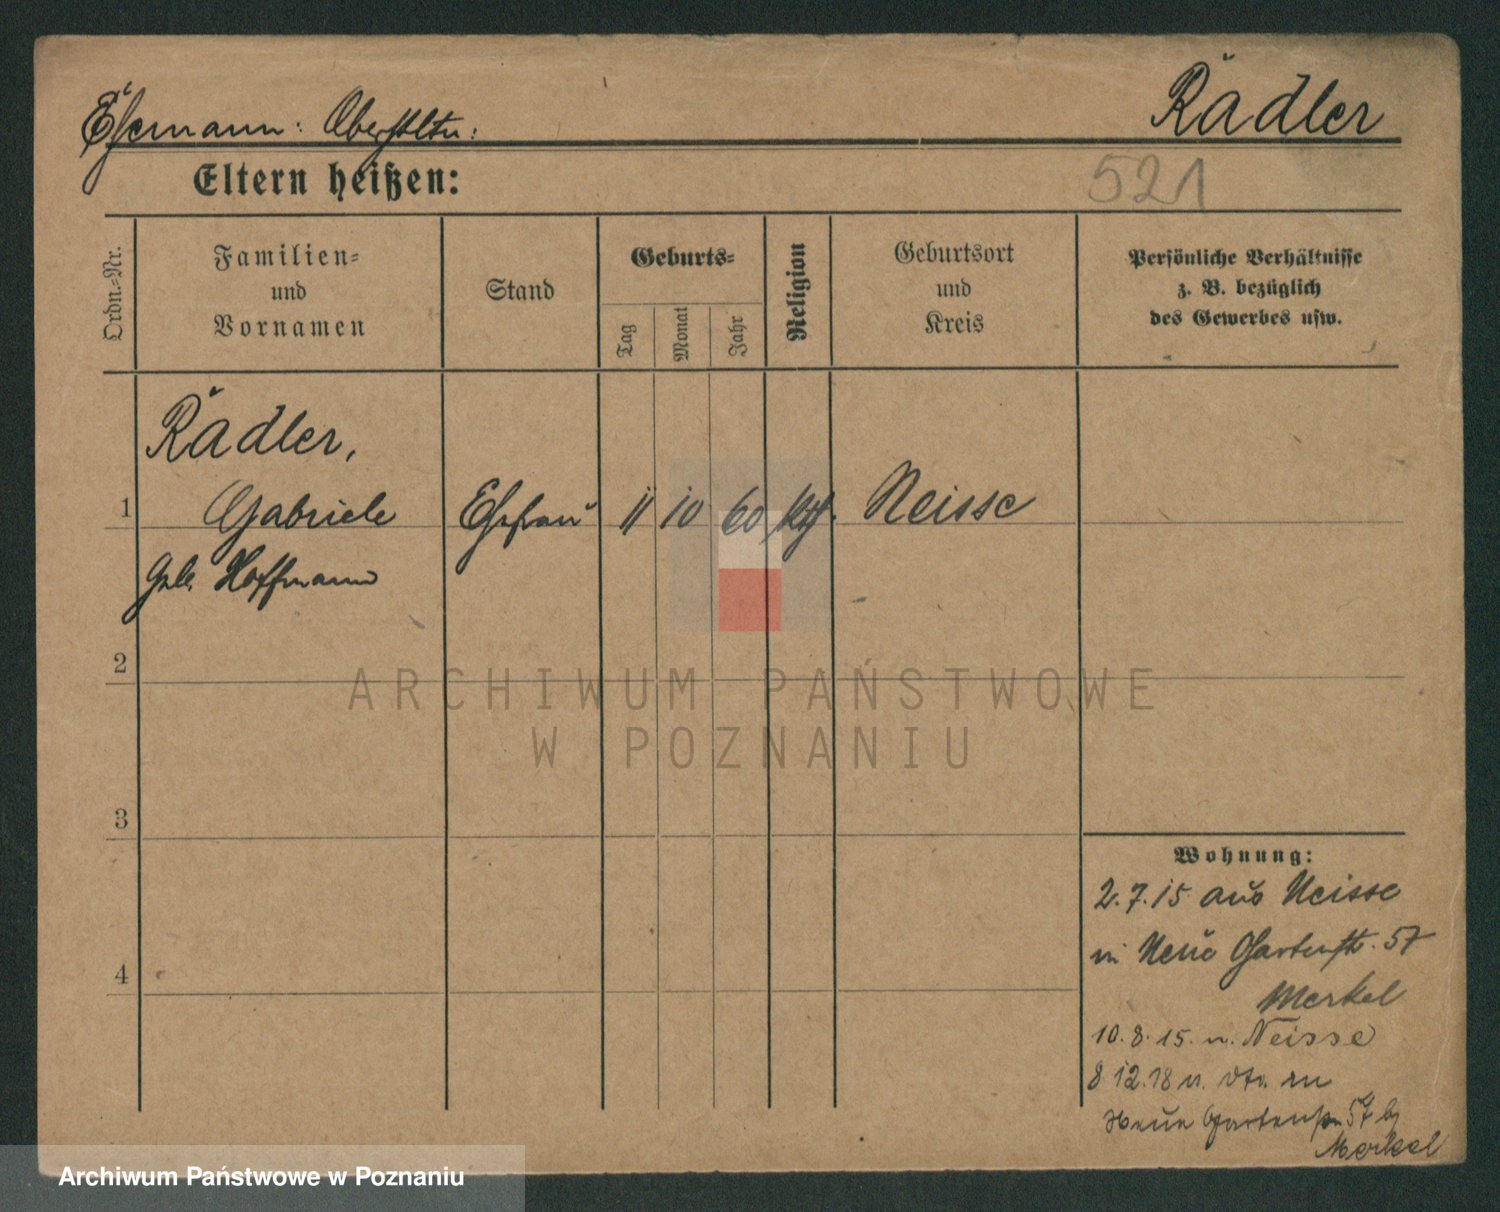 Rädler
Ehemann: Oberstltn:
Eltern heißen:
521
Ordn.=Nr.
Familien=
und
Vornamen
Stand
Geburts=
Tag
Monat
Jahr
Religion
Geburtsort
und
Kreis
Persönliche Verhältnisse
z. B. bezüglich
des Gewerbes usw.
Rädler,
1 Gabriele Ehefrau 11 10 60 kth. Neisse
geb. Hoffmann
2
3
4
Wohnung:
2.7.15 aus Neisse
in Neue Gartenstr. 57
Merkel
10.8.15. n. Neisse
8 12.18 v. dto. in
Neue Gartenstr 57 b/
Merkel
ARCHIWUM PAŃSTWOWE
W POZNANIU
Archiwum Państwowe w Poznaniu